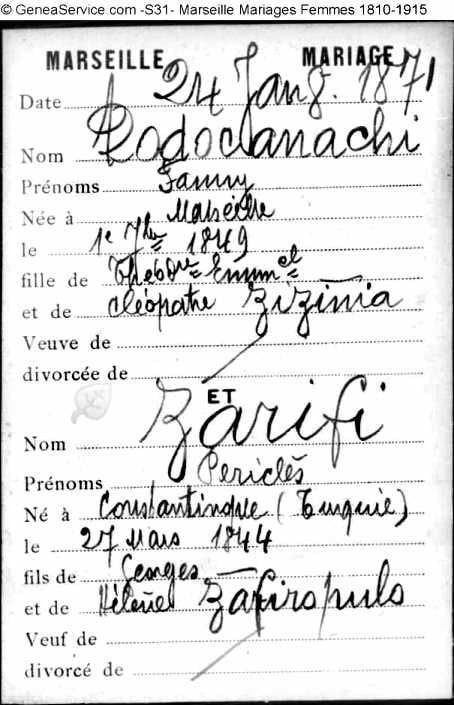 © GeneaService.com -S31- Marseille Mariages Femmes 1810-1915
MARSEILLE MARIAGE
Date 24 Janv. 1871
Nom Rodocanachi
Prénoms Fanny
Née à Marseille
le 1e 7bre 1849
fille de Théodre Emmel
et de Cléopatre Zizinia
Veuve de
divorcée de
ET
Nom Zarifi
Prénoms Periclès
Né à Constantinople (Turquie)
le 27 Mars 1844
fils de Georges
et de Hélène Zafiropulo
Veuf de
divorcé de